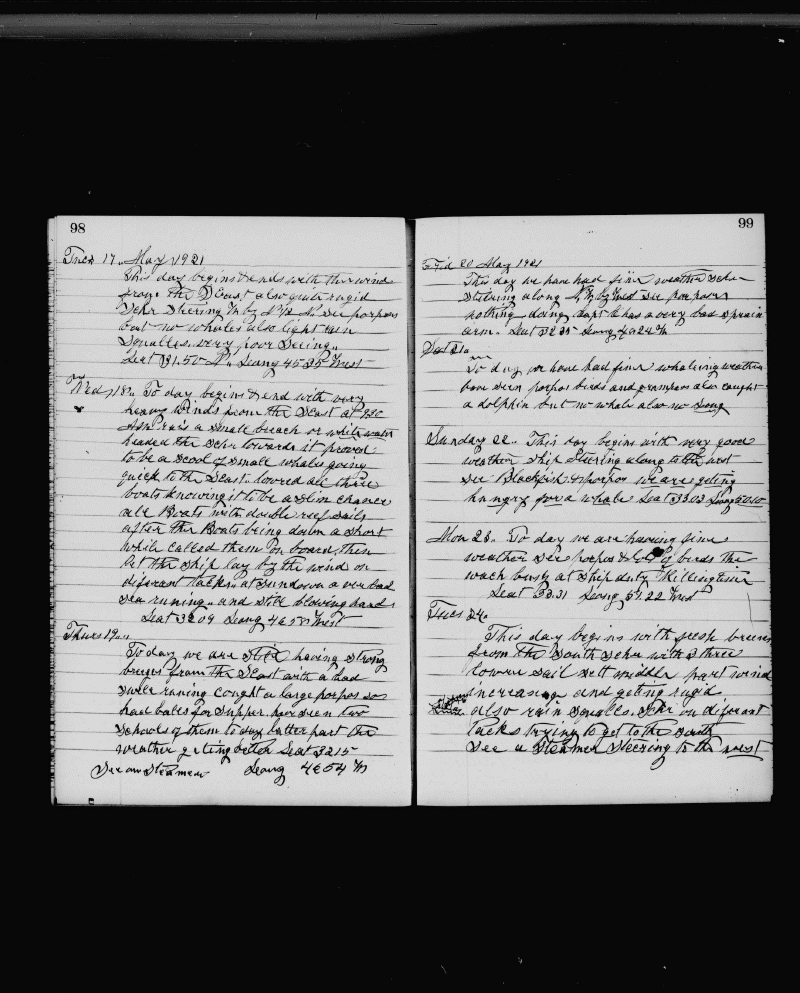 98
Tues 17.. May 1921
This day begins & ends with the wind
from the SEast also quite rugid
Schr Steering W by N 1/2 N. See porpos
but no whales also light rain
Squalles. very poor Seeing..
Leat 31.50 N.. Leong 45 35 West
Wed 18.. To day begins & end with very
heavy Winds from the SEast at 930
AM rais a small breach or white water
headed the Schr towards it proved
to be a scool of small whales going
quick to the SEast. lowered all three
boats knowing it to be a slim chance
all Boats with double reef sails
after the Boats being down a short
while called them on board, then
let the ship lay by the wind on
diferant tacks.. at Sundown a very bad
Sea runing.. and still blowing hard
Leat 32 09 Leong 46 West
Thurs 19..
To day we are still having strong
breezes from the SEast with a bad
swell runing caught a large porpos so
had balls for supper. have seen two
schools of them to day latter part the
weather geting better Leat 32 15
See an steamer Leong 46 54 W
99
Frid 20 May 1921
This day we have had finr weather Schr
Steering along W by West see porposes
nothing doing Capt C has a very bad sprain
arm. Leat 32 35 Leong 49 24 W
Sat 21..
To day we have had finr whaleing weather
have seen porpos birds and grampers also caught
a dolphin but no whale also no Leong
Sunday 22. This day begins with very good
weather ship steering along to the west
see Blackfish & porpos we are geting
hungry for a whale Leat 33.03 Leong 50 10
Mon 23. To day we are having fine
weather see porpos & lots of birds the
wach busy at ship duty Killing time
Leat 33.31 Leong 51.22 West
Tues 24.
This day begins with fresh breezes
from the South Schr with 3 three
lower sail sett middle part wind
increasing and geting rugid
also rain squalles. Schr on diferant
Tacks trying to get to the South
See a Steamer Steering to the west